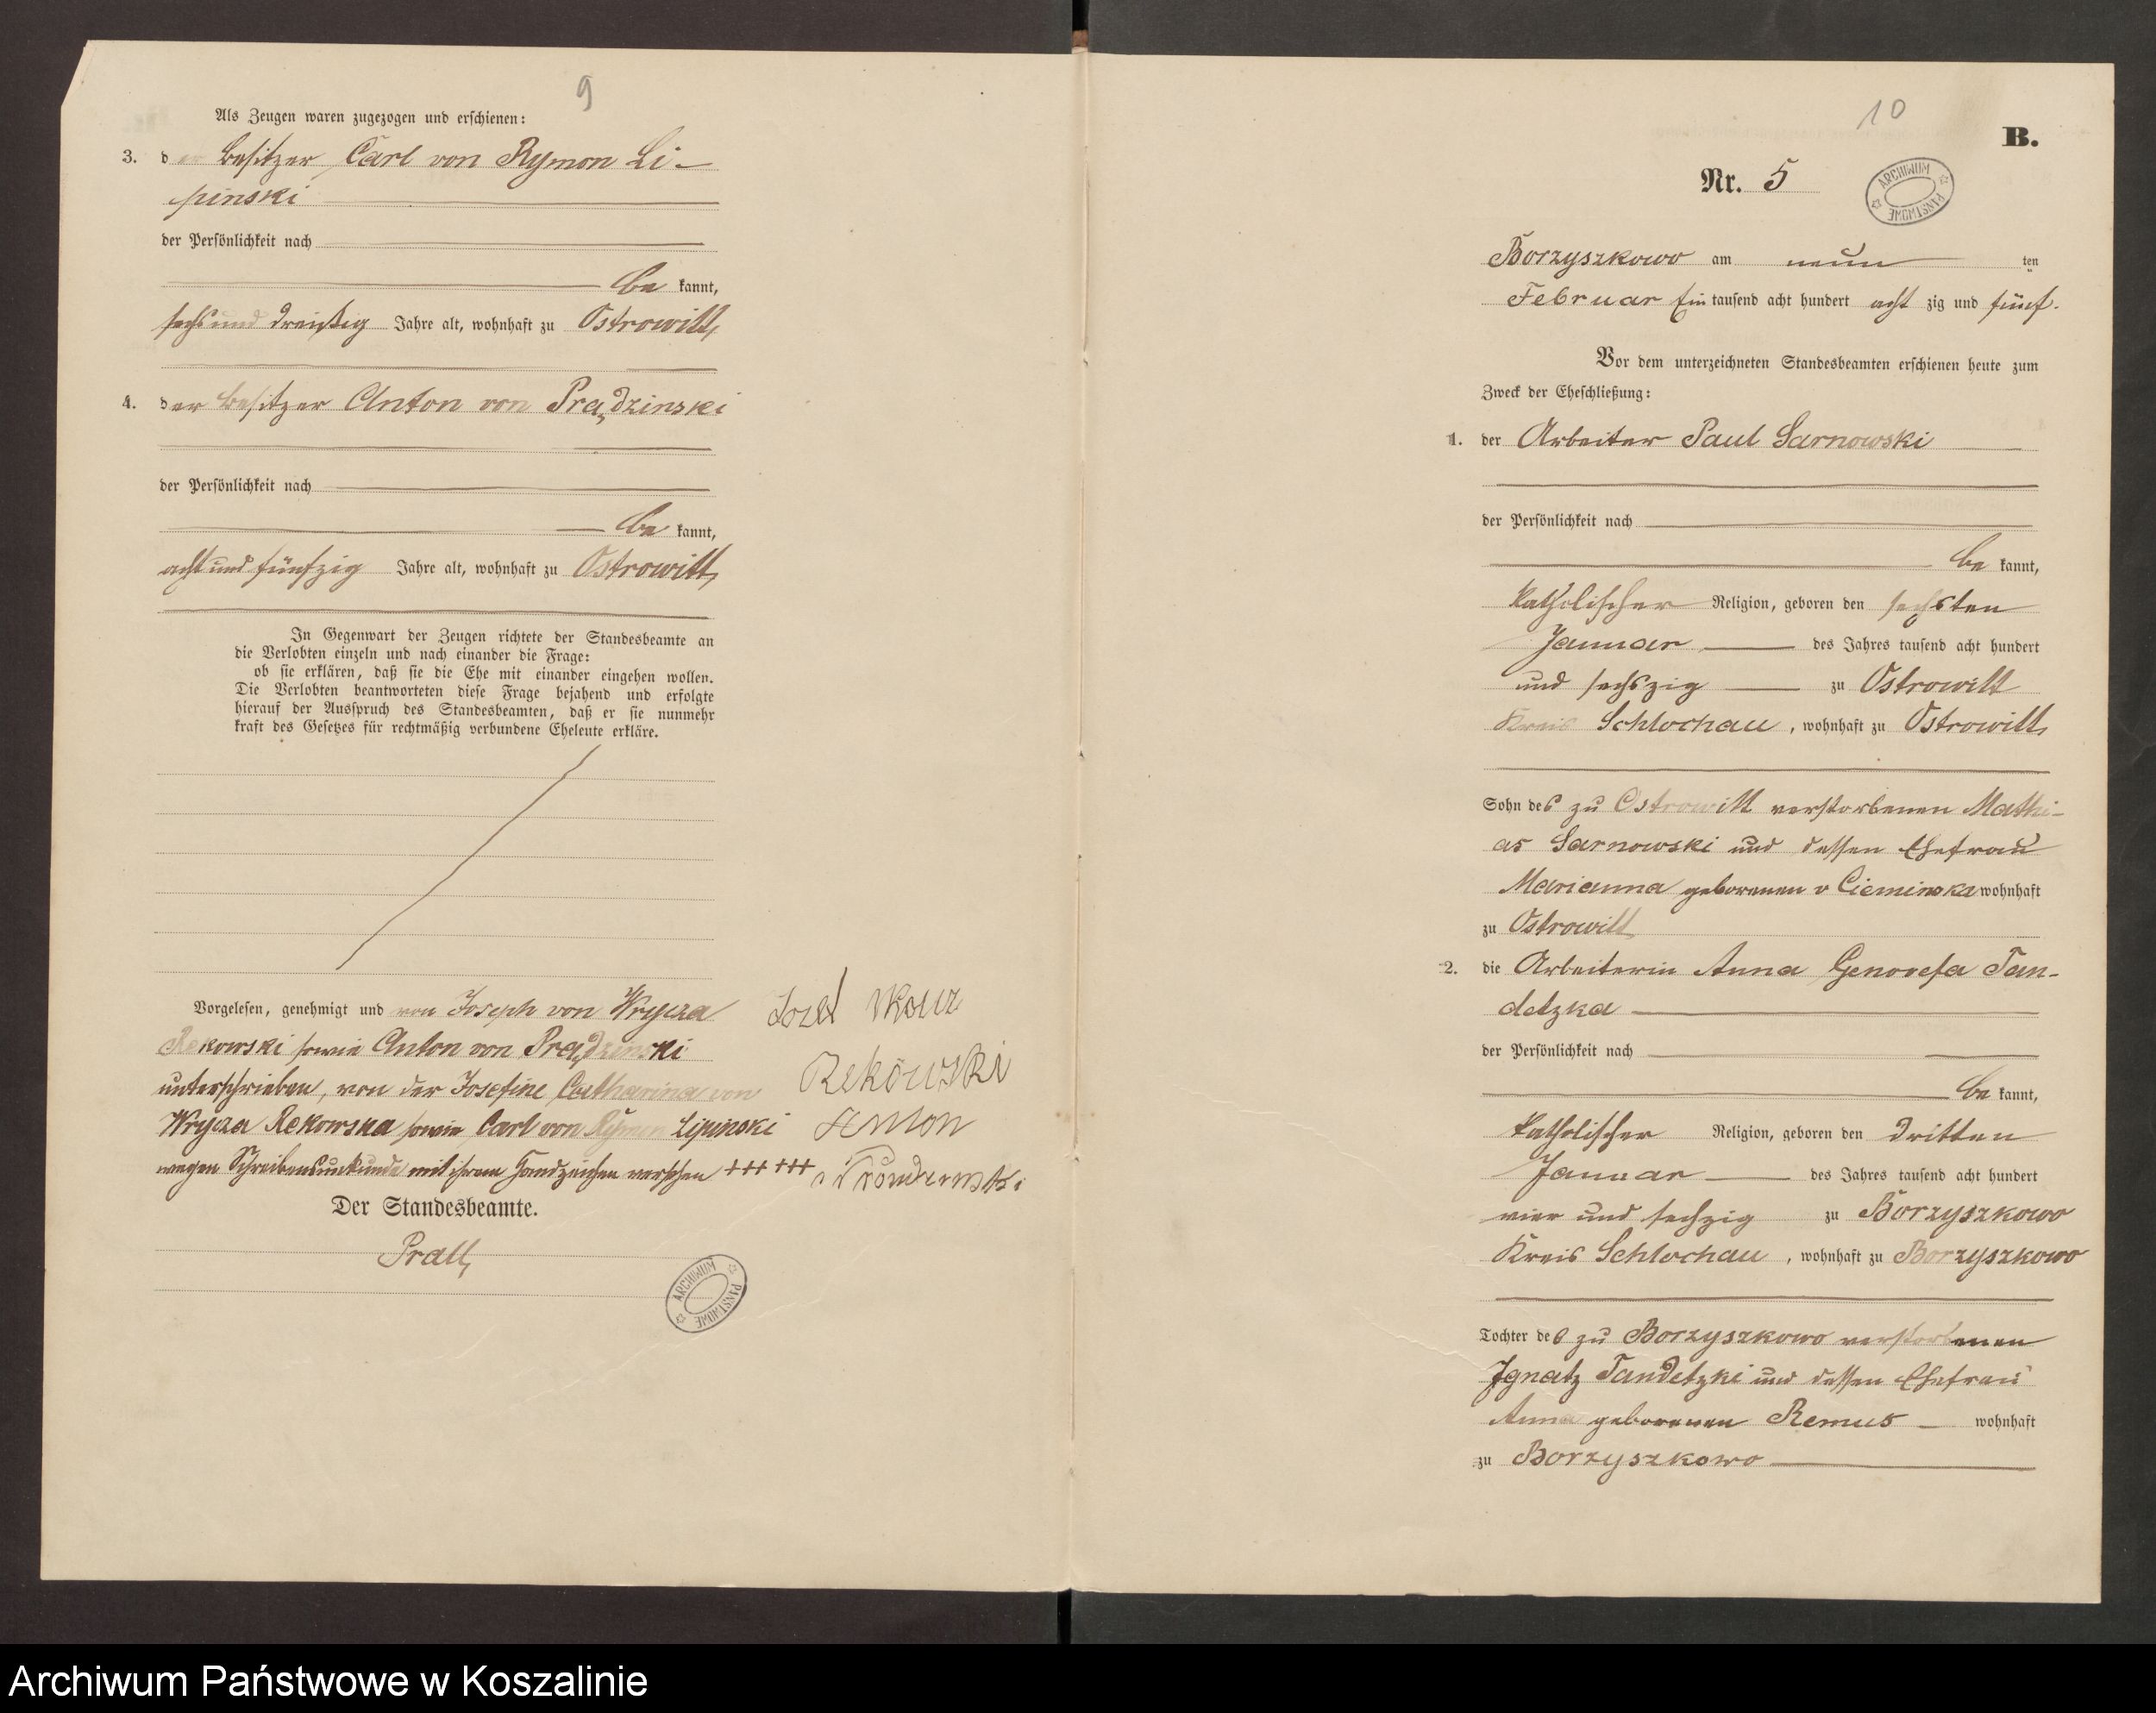 9
Als Zeugen waren zugezogen und erschienen:
3. der Besitzer Carl von Rymon Li-
pinski
der Persönlichkeit nach
be kannt,
sechs und dreißig Jahre alt, wohnhaft zu Ostrowitt,
4. der Besitzer Anton von Prądzinski
der Persönlichkeit nach
be kannt,
acht und fünfzig Jahre alt, wohnhaft zu Ostrowitt,
In Gegenwart der Zeugen richtete der Standesbeamte an
die Verlobten einzeln und nach einander die Frage:
ob sie erklären, daß sie die Ehe mit einander eingehen wollen.
Die Verlobten beantworteten diese Frage bejahend und erfolgte
hierauf der Ausspruch des Standesbeamten, daß er sie nunmehr
kraft des Gesetzes für rechtmäßig verbundene Eheleute erkläre.
Vorgelesen, genehmigt und von Joseph von Wrycza
Rekowski sowie Anton von Prądzinski
unterschrieben, von der Josefine Catharina von
Wrycza Rekowska sowie Carl von Rymon Lipinski
wegen Schreibensunkunde mit ihrem Handzeichen versehen +++ +++
Josef
Rekowski
Anton
Der Standesbeamte.
Prall,
ARCHIWUM PAŃSTWOWE
10
B.
Nr. 5
ARCHIWUM PAŃSTWOWE
Borzyszkowo am neun ten
Februar Ein tausend acht hundert acht zig und fünf.
Vor dem unterzeichneten Standesbeamten erschienen heute zum
Zweck der Eheschließung:
1. der Arbeiter Paul Sarnowski
der Persönlichkeit nach
be kannt,
katholischer Religion, geboren den sechsten
Januar des Jahres tausend acht hundert
und sechszig zu Ostrowitt
Kreis Schlochau, wohnhaft zu Ostrowitt,
Sohn des zu Ostrowitt verstorbenen Mathi-
as Sarnowski und dessen Ehefrau
Marianna geborenen v Cieminska wohnhaft
zu Ostrowitt
2. die Arbeiterin Anna Genovefa Tan-
detzka
der Persönlichkeit nach
be kannt,
katholischer Religion, geboren den dritten
Januar des Jahres tausend acht hundert
vier und sechzig zu Borzyszkowo
Kreis Schlochau, wohnhaft zu Borzyszkowo
Tochter des zu Borzyszkowo verstorbenen
Ignatz Tandetzki und dessen Ehefrau
Anna geborenen Remus wohnhaft
zu Borzyszkowo
Archiwum Państwowe w Koszalinie